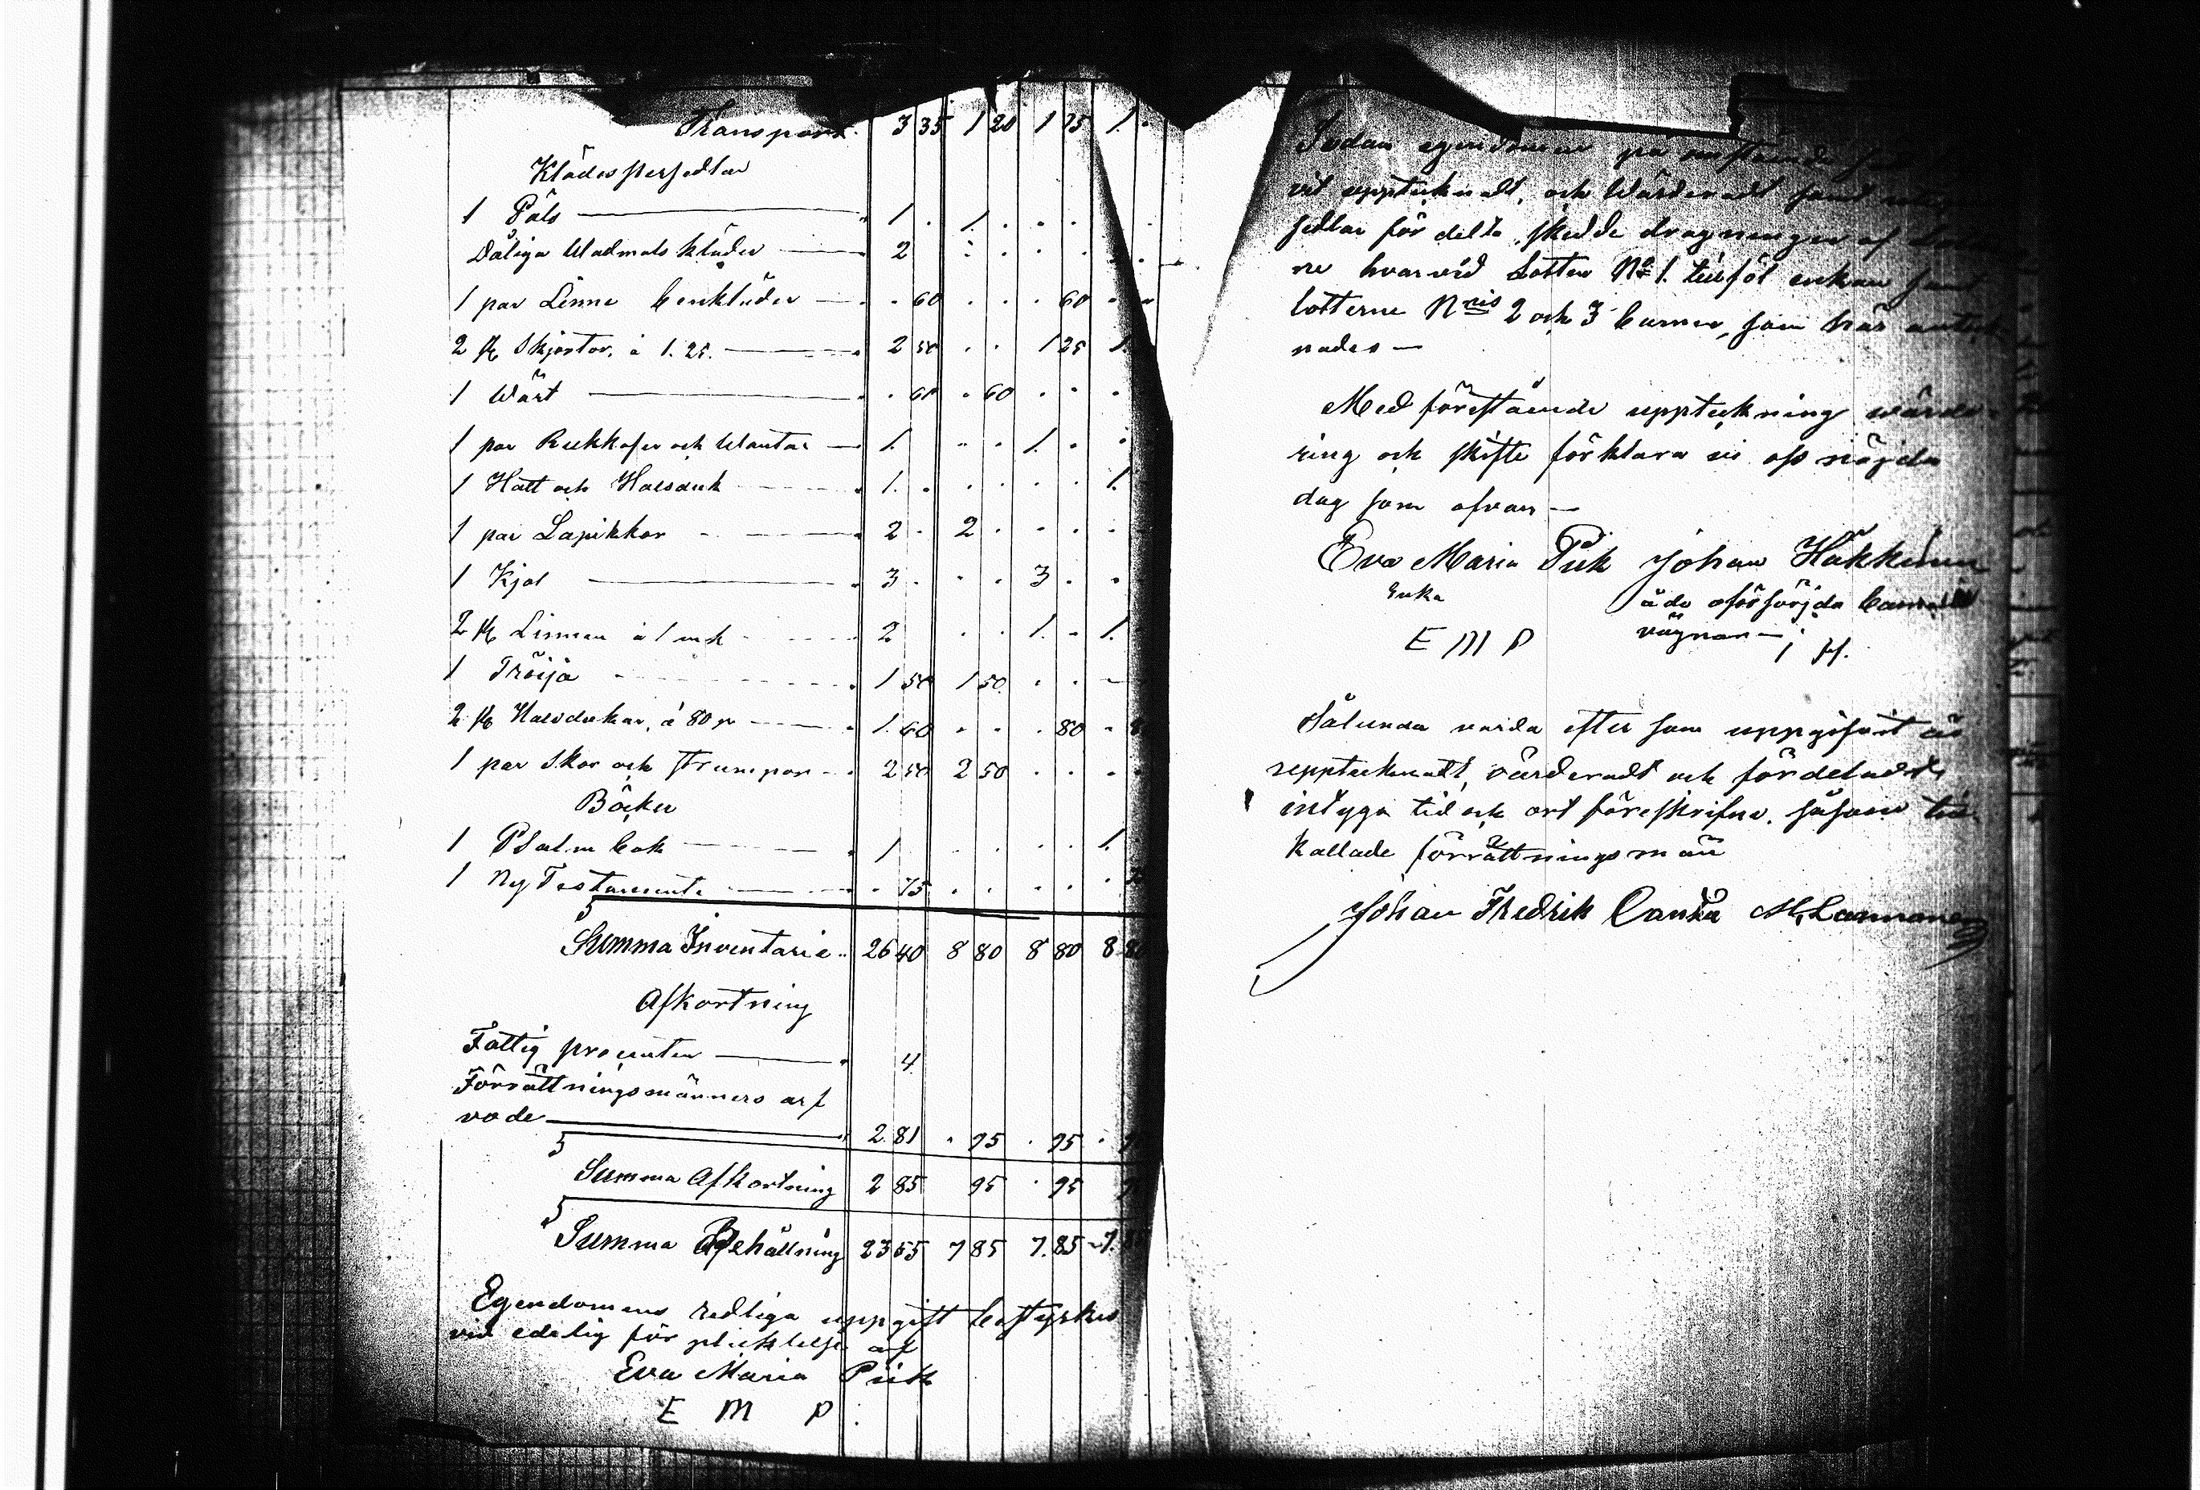 Transport 3 35 1 20 1 15 1 .
Klädespersedlar
1 Päls 1 . 1 .
Dåliga Wadmals kläder 2
1 par Linne benkläder . 60 . . . 60
2 st Skjortor, à 1.25. 2 50 . . 1 25 1
1 Wäst . 60 . 60
1 par och Wantar 1. . . 1.
1 Hatt och Halsduk 1. . . . . . 1.
1 par Lapikkor 2 . 2
1 Kjol 3 . . . 3
2 st Linnen à 1 mk 2 . . 1. . 1.
1 Tröija 1 50 1 50
2 st Halsdukar, à 80 p 1. 60 . . . 80
1 par Skor och strumpor 2 50 2 50
Böcker
1 Psalm bok 1 . . . . . 1.
1 Ny Testamente . 75
Summa Inventarie 26 40 8 80 8 80 8 80
Afkortning
Fattig procenten 4
Förrättningsmänners arf
vode 2.81 . 95 . 95
Summa Afkortning 2 85 95 . 95
Summa Behållning 23 55 7 85 7.85 7.
Egendomens redliga uppgift bestyrkes
vid edelig för pliktelse af
Eva Maria Piik
E M P
Sedan egendomen på
vis upptecknadt, och Wärderadt samt
sedlar för delta, skedde dragningen af
ne hvarvid Lotten No 1. tillföl enkan
lotterne Nris 2 och 3 barnen, som här anteck
nades —
Med förestående uppteckning wärde-
ring och skifte förklara vi oss nöjda
dag som ofvan —
Eva Maria Piik Johan Häkkinen
Enka å de oförsörjda barnens
E M P vägnar — J H.
Sålunda varda efter som uppgifvit är
upptecknadt, värderadt och fördeladt
intyga tid och ort föreskrifne. såsom till-
kallade förrättningsmän
Johan Fredrik M. Lamman